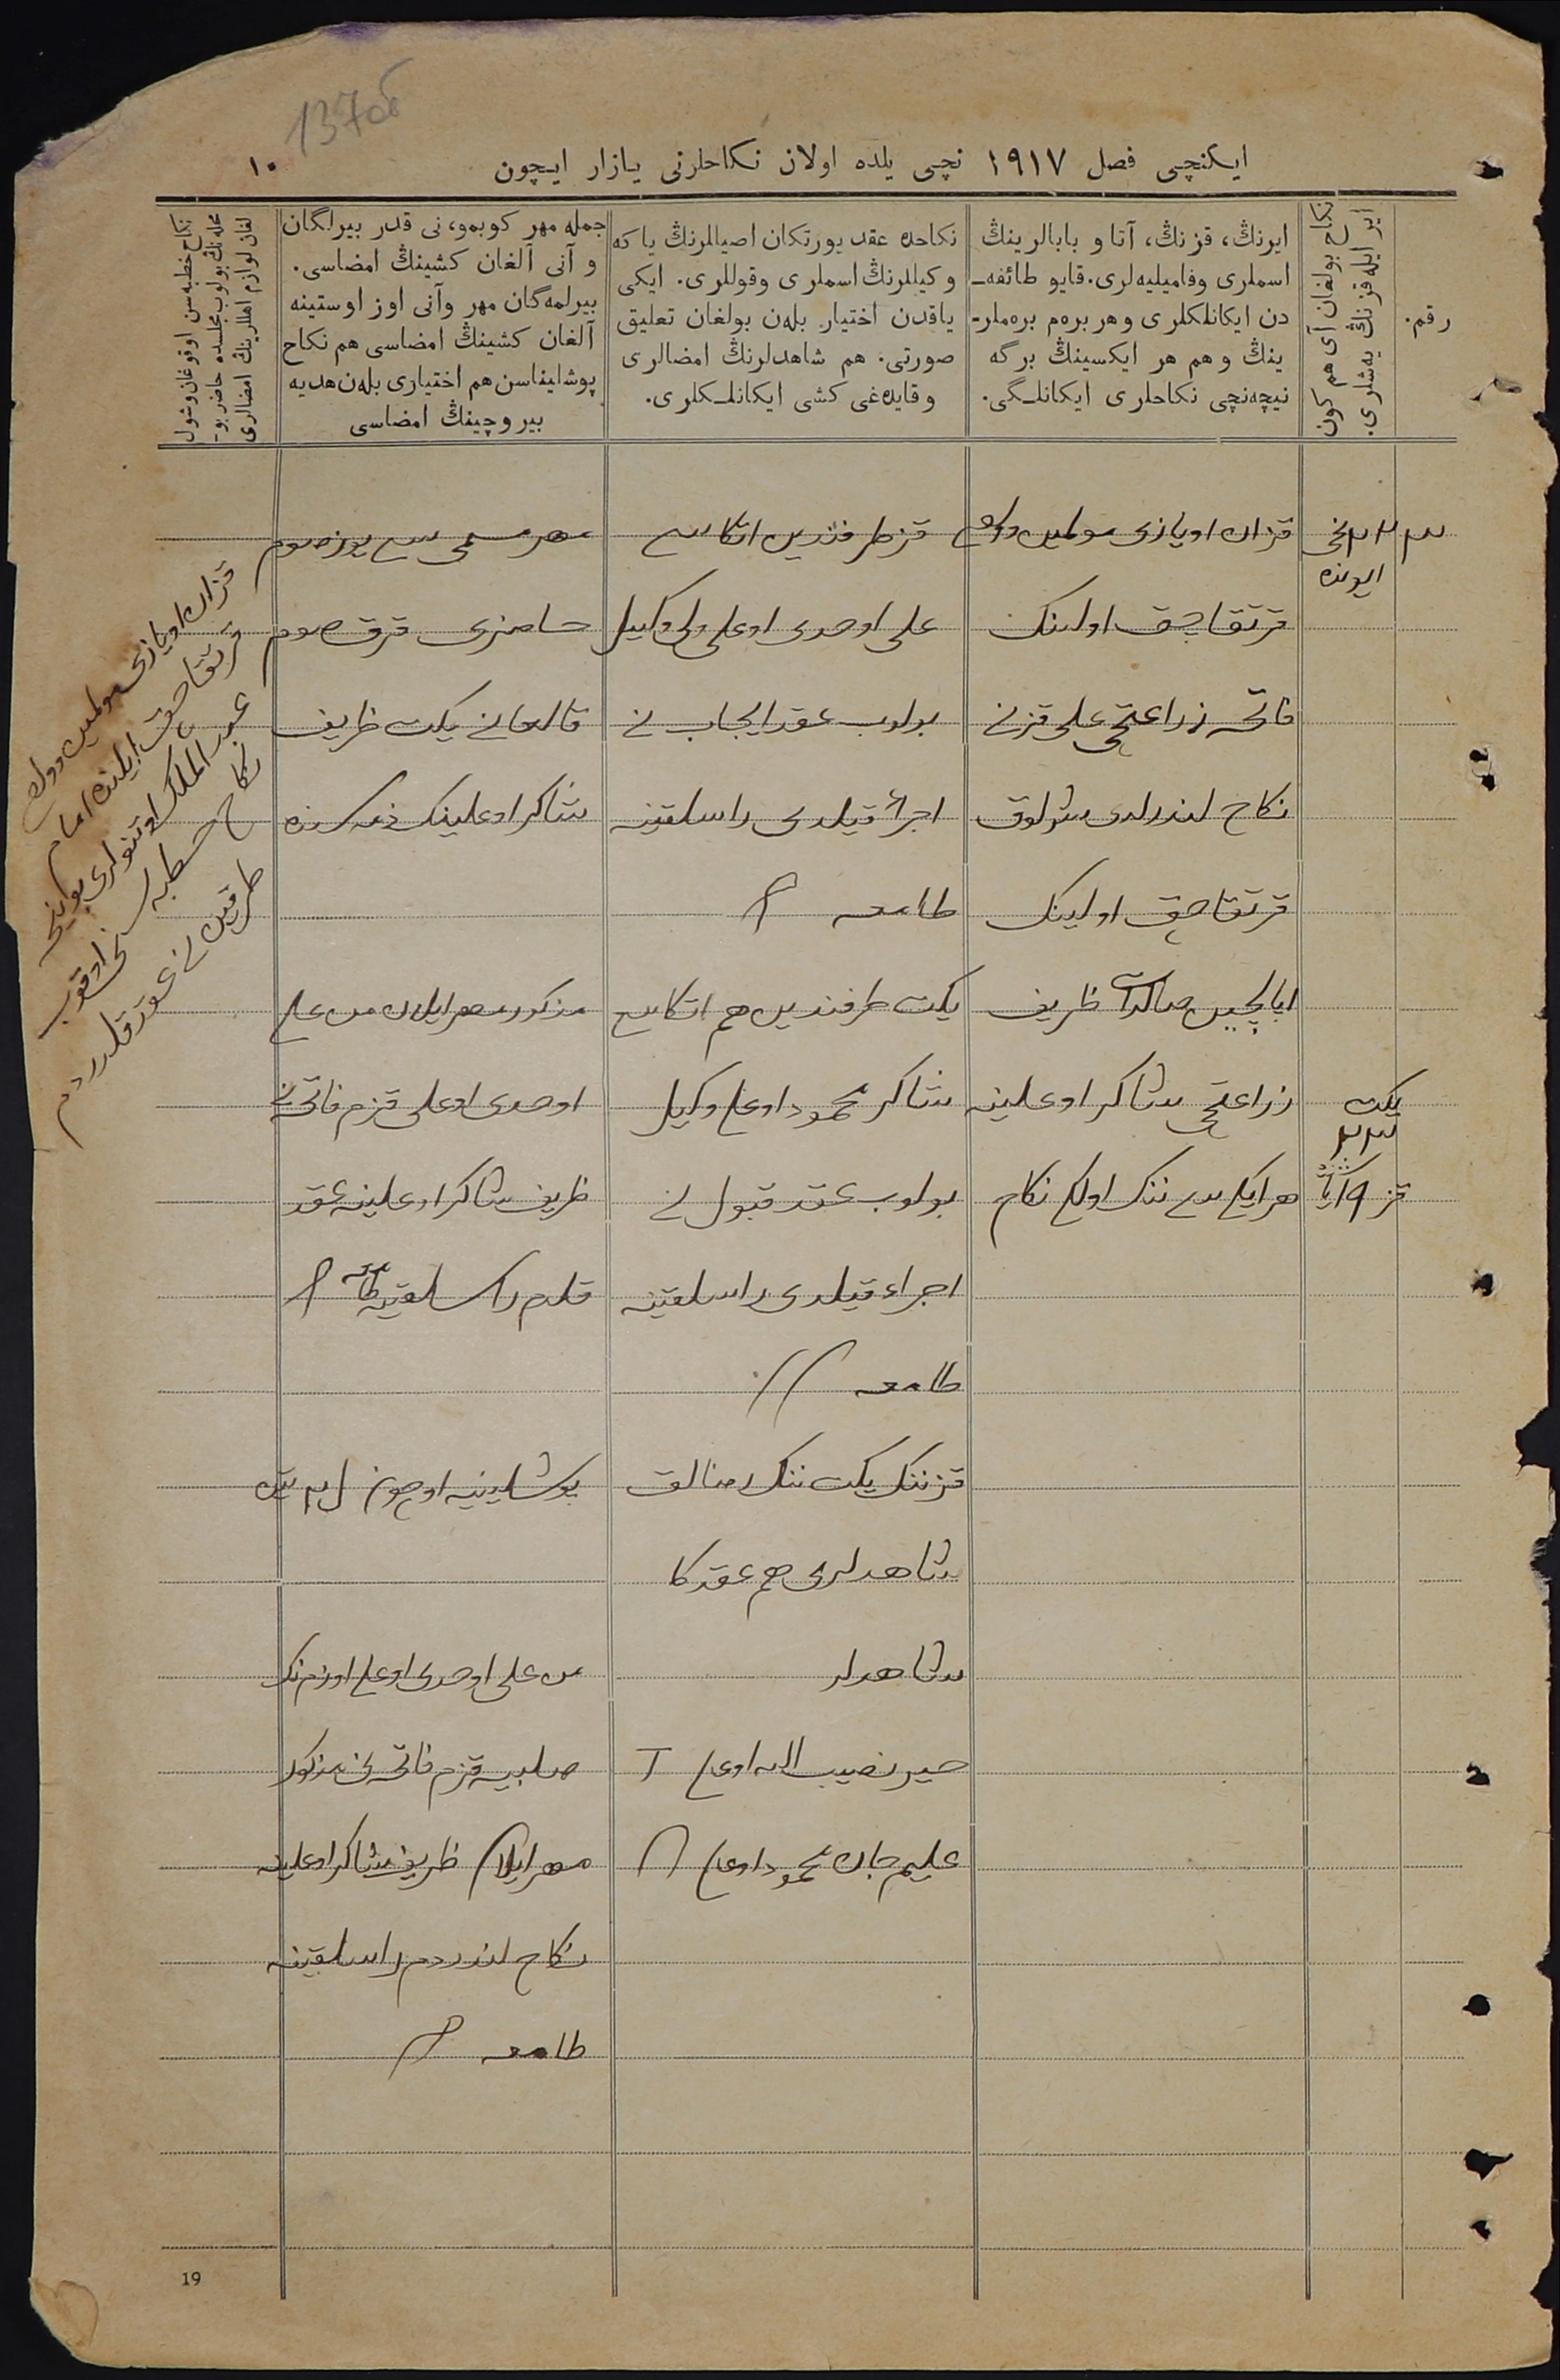 137об
ایکنچی فصل ۱۹۱۷ نچی یلده اولان نکاحلرنی یازار ایچون
۱۰
رقم.
نکاح بولغان آی هم کون
ایر ایله قزنڭ یه‌شلری.
ایرنڭ، قزنڭ، آتا و بابالرینڭ
اسملری وفامیلیه‌لری. قایو طائفه‌ـ
دن ایکانلکلری و هر بره‌م بره‌ملرـ
ینڭ و هم هر ایکسینڭ برگه
نیچه‌نچی نکاحلری ایکانلـگی.
نکاحده عقد یورتکان اصیاللرنڭ یا که
و کیللرنڭ اسملری وقوللری. ایکی
یاقدن اختیار بله‌ن بولغان تعلیق
صورتی. هم شاهدلرنڭ امضالری
و قایده‌غی کشی ایکانلـکلری.
جمله مهر کوبمو، نی قدر بیرلگان
و آنی آلغان کشینڭ امضاسی.
بیرلمه‌گان مهر وآنی اوز اوستینه
آلغان کشینڭ امضاسی هم نکاح
پوشلیناسن هم اختیاری بله‌ن هدیه
بیروچینڭ امضاسی
نکاح خطبه‌سن اوقوغان وشول
محله‌نڭ بولوب مجلسده حاضر بوـ
لغان لوازم اهللرینڭ امضالری
۳
۲۲ نچی
ایونده
یکت
۲۳
قز ۱۹ یاشنده
قزان اویازی
قرتقاچق اولینک
فاتحه زراعتچی علی قزنی
نکاح لندرلدی شولوق
قرتقاچق اولینک
ظریف
زراعتچی شاکر اوغلینه
هر ایکی سی ننک اولکی نکاح
قز طرفندین اتکاسی
علی اوحدی اوغلی ولی وکیل
بولوب عقد ایجاب نی
اجراء قیلدی راسلقینه
طامغه
یکت طرفندین هم اتکاسی
شاکر محمود اوغلی وکیل
بولوب عقد قبول نی
اجراء قیلدی راسلقینه
طامغه
قز ننک یکت ننک رضالق
شاهدلری هم عقدکا
شاهدلر
نصیب الله اوغلی
علیم جان محمود اوغلی
مهر مسمی یوز صوم
حاضری قرق صوم
قالغانی یکت ظریف
شاکر اوغلینک ذمه سنده
مذکور مهر ایلان من علی
اوحدی اوغلی قزم فاتحه نی
ظریف شاکر اوغلینه عقد
قلدم راسلقینه طامغه
پوشلینه اوچون
من علی اوحدی اوغلی اوزم نک
صلبیه قزم فاتحه نی مذکور
مهر ایلان ظریف شاکر اوغلینه
نکاح لندردم راسلقینه
طامغه
قزان اویازی
قرتقاچق اولینک امام
عبد الملک
نکاح خطبه سنی اوقوب
طرفین نی عقد قلدردم
19